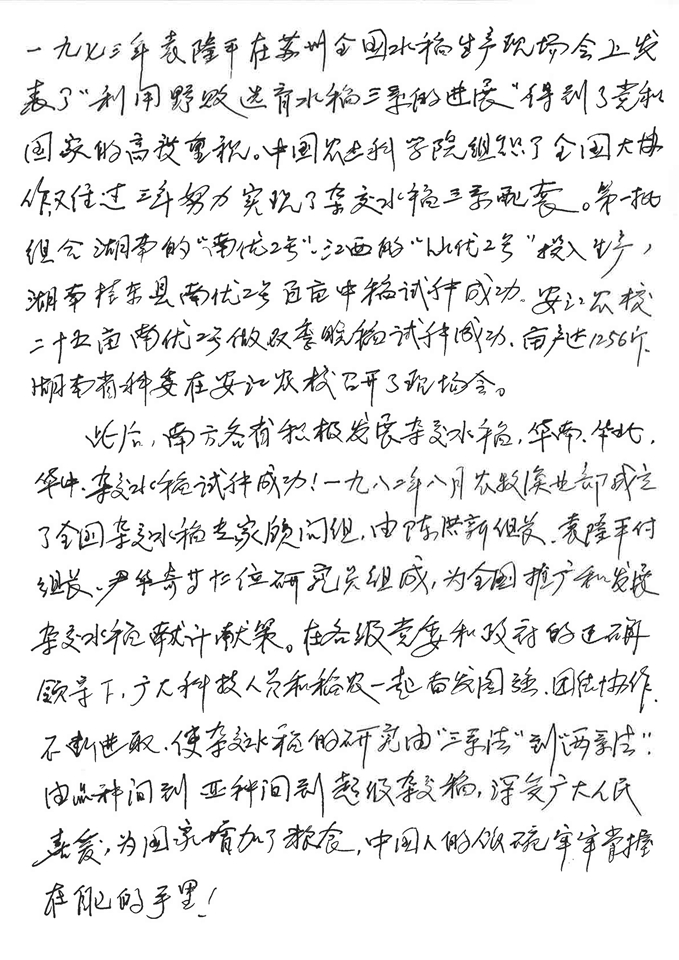 一九七三年袁隆平在苏州全国水稻生产现场会上发
表了“利用野败选育水稻三系的进展”得到了党和
国家的高效重视。中国农业科学院组织了全国大协
作,又经过三年努力实现了杂交水稻三系配套。第一批
组合湖南的“南优2号”、江西的“汕优2号”投入生产,
湖南桂东县南优2号百亩中稻试种成功、安江农校
二十五亩南优2号做双季晚稻试种成功、亩产达1256斤、
湖南省科委在安江农校召开了现场会。
此后,南方各省积极发展杂交水稻,华南、华北,
华中、杂交水稻试种成功!一九八二年八月农牧渔业部成立
了全国杂交水稻专家顾问组,由陈洪新组长、袁隆平付
组长、尹华奇等十位研究员组成,为全国推广和发展
杂交水稻献计献策。在各级党委和政府的正确
领导下,广大科技人员和稻农一起奋发图强、团结协作、
不断进取、使杂交水稻的研究由“三系法”到“两系法”.
由品种间到亚种间到超级杂交稻,深受广大人民
喜爱,为国家增加了粮食,中国人的饭碗牢牢掌握
在自己的手里!